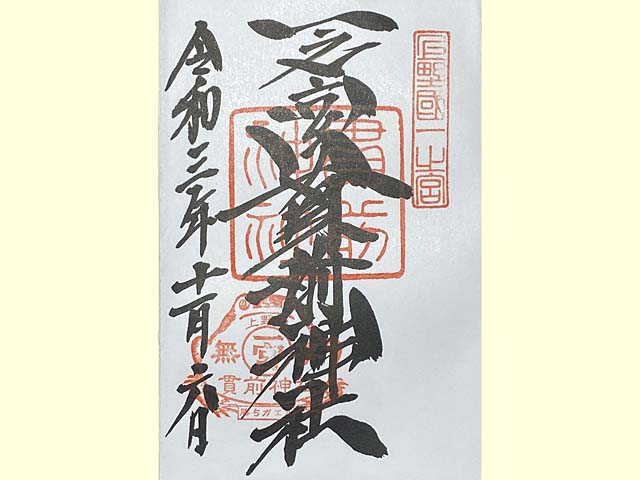 上野國一之宮
一之宮貫前神社
令和三年十一月六日
貫前神社
上野
無
貫前神
勝ちガエル